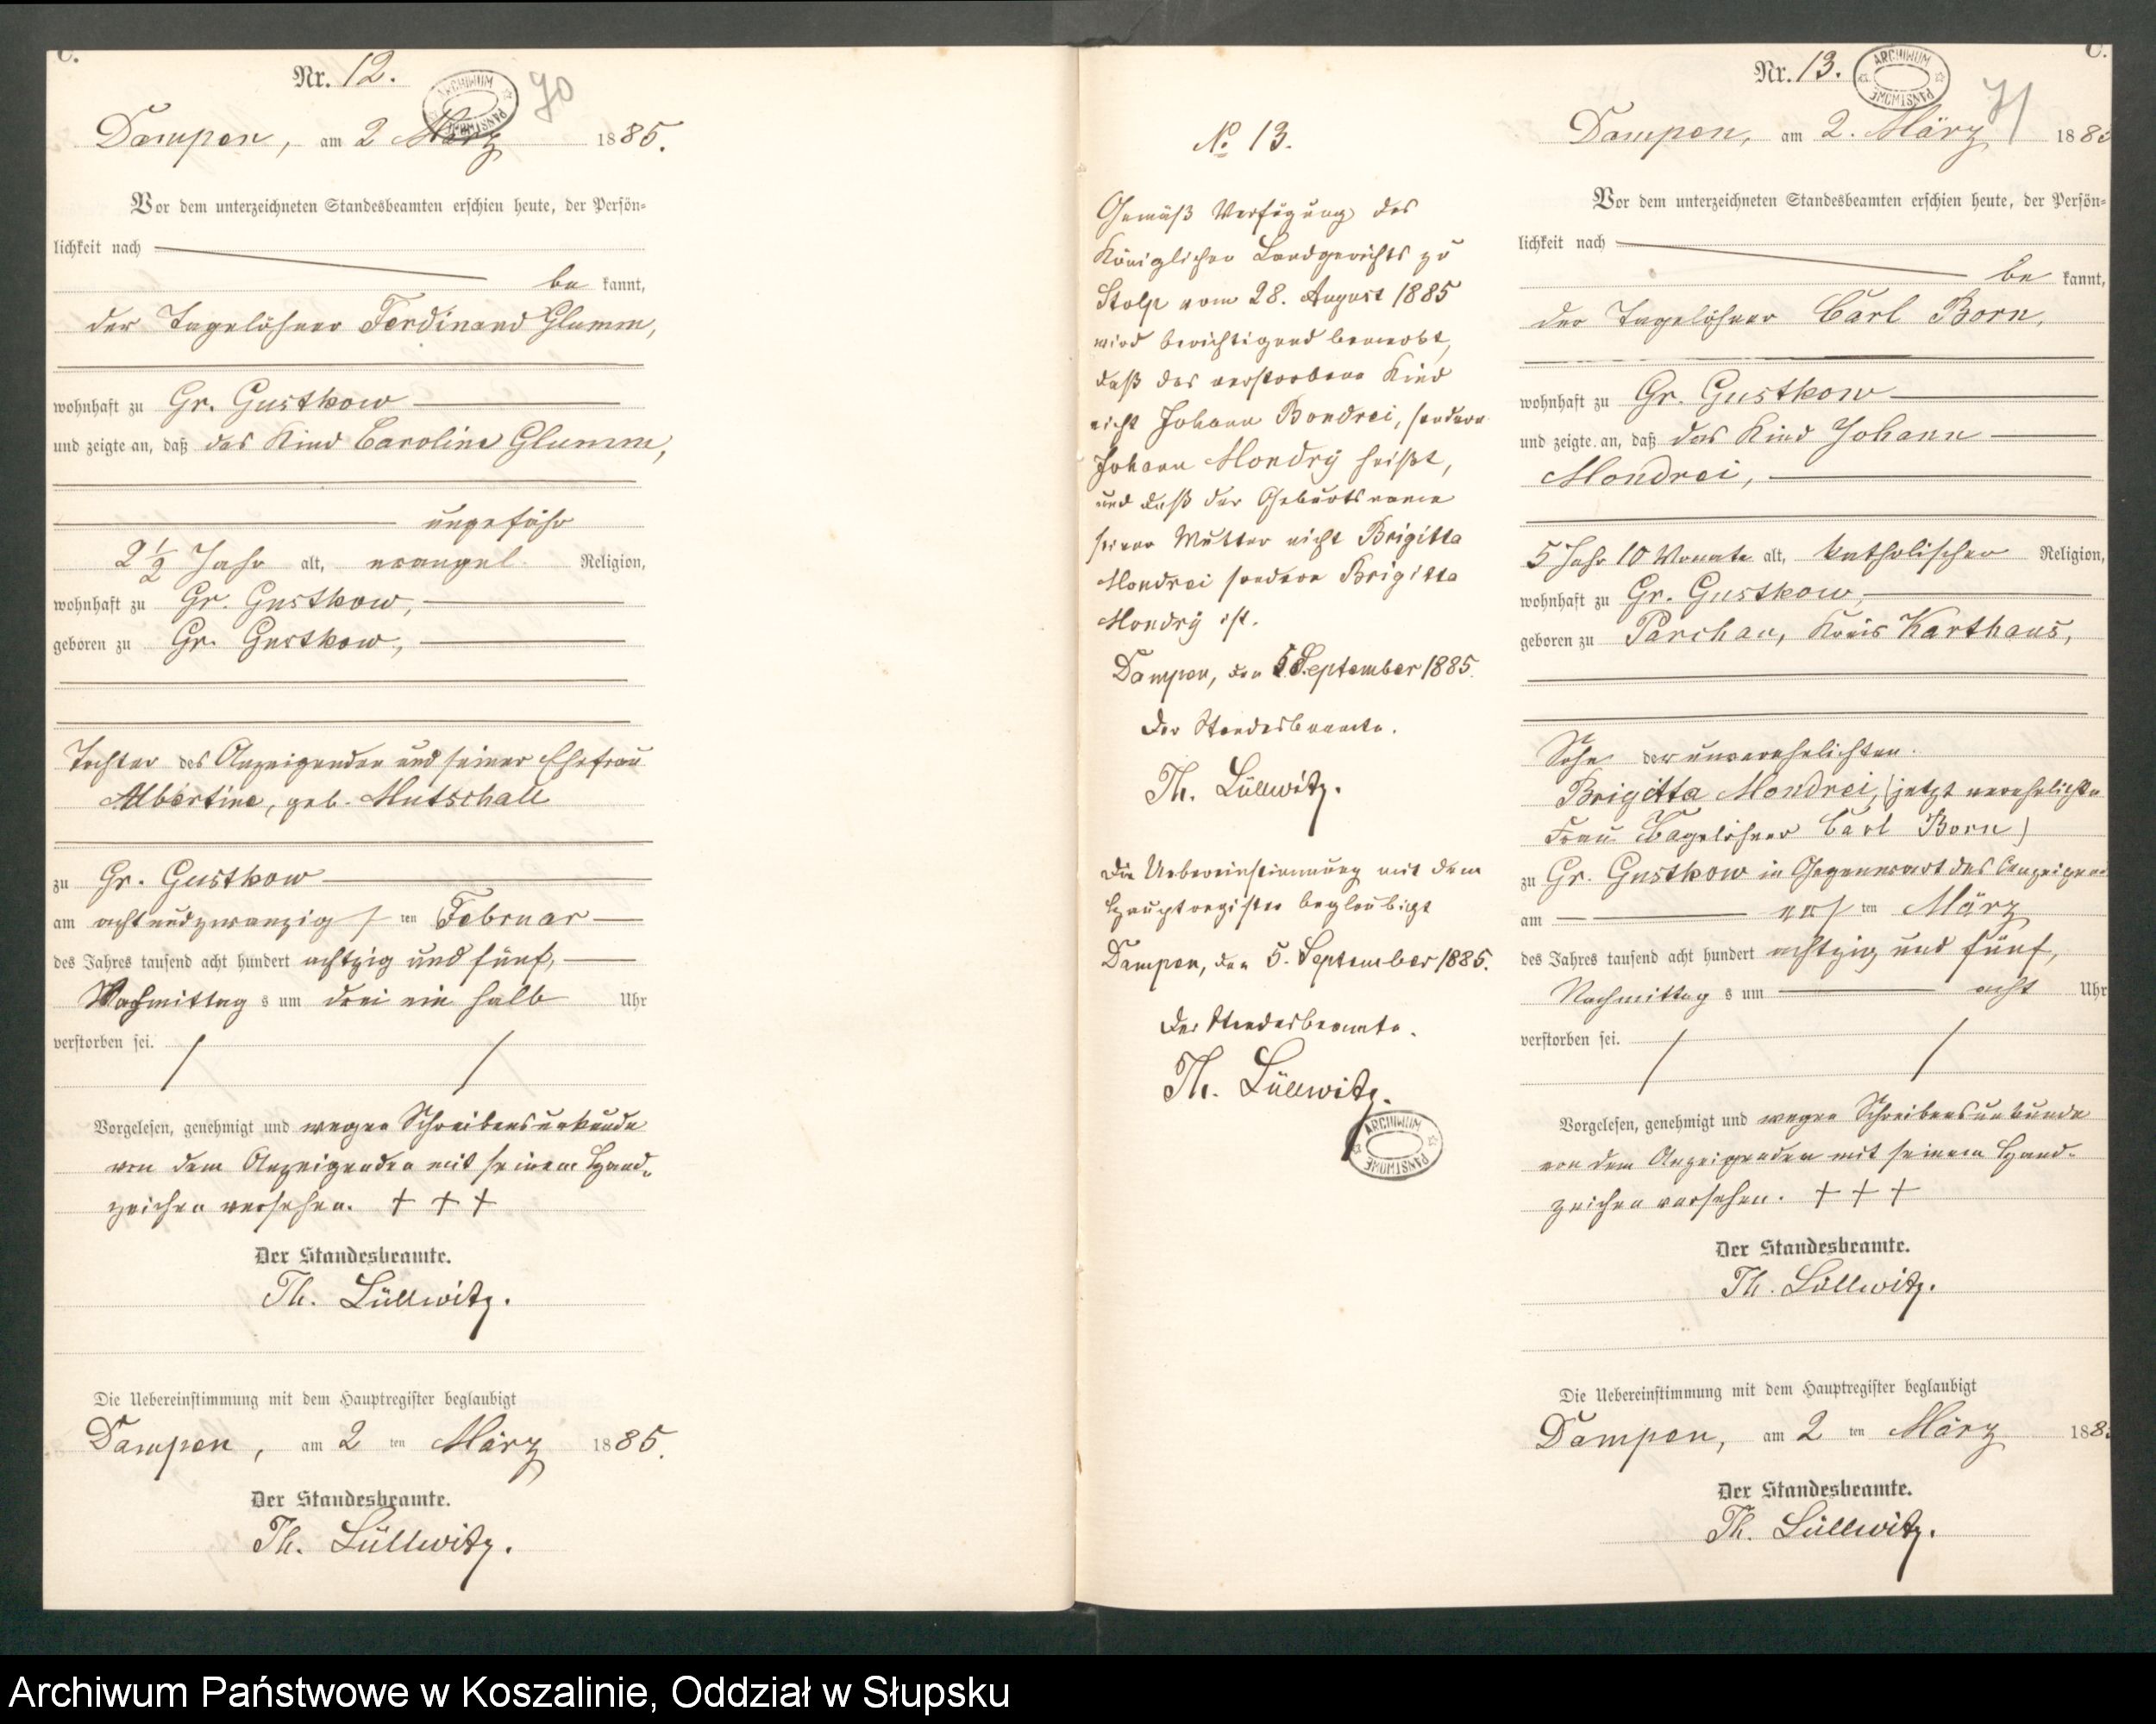 C.
Nr. 12.
ARCHIWUM PAŃSTWOWE
70
Dampen, am 2 März 1885.
Vor dem unterzeichneten Standesbeamten erschien heute, der Persön-
lichkeit nach
be kannt,
der Tagelöhner Ferdinand Glumm,
wohnhaft zu Gr. Gustkow
und zeigte an, daß das Kind Caroline Glumm,
ungefähr
2 1/2 Jahr alt, evangel. Religion,
wohnhaft zu Gr. Gustkow,
geboren zu Gr. Gustkow,
Tochter des Anzeigenden und seiner Ehefrau
Albertine, geb. Mutschall
zu Gr. Gustkow
am achtundzwanzigsten Februar
des Jahres tausend acht hundert achtzig und fünf,
Nachmittag s um drei ein halb Uhr
verstorben sei.
Vorgelesen, genehmigt und wegen Schreibensunkunde
von dem Anzeigenden mit seinem Hand-
zeichen versehen. + + +
Der Standesbeamte.
Th. Lüllwitz.
Die Uebereinstimmung mit dem Hauptregister beglaubigt
Dampen, am 2 ten März 1885.
Der Standesbeamte.
Th. Lüllwitz.
No 13.
Gemäß Verfügung des
Königlichen Landgerichts zu
Stolp vom 28. August 1885
wird berichtigend bemerkt,
daß das verstorbene Kind
nicht Johann Bondrei, sondern
Johann Mondry heißt,
und daß der Geburtsname
seiner Mutter nicht Brigitta
Mondrei sondern Brigitta
Mondry ist.
Dampen, den 5. September 1885.
Der Standesbeamte.
Th. Lüllwitz.
Die Uebereinstimmung mit dem
Hauptregister beglaubigt
Dampen, den 5. September 1885.
Der Standesbeamte.
Th. Lüllwitz.
ARCHIWUM PAŃSTWOWE
C.
Nr. 13.
ARCHIWUM PAŃSTWOWE
71
Dampen, am 2. März 188
Vor dem unterzeichneten Standesbeamten erschien heute, der Persön-
lichkeit nach
be kannt,
der Tagelöhner Carl Born,
wohnhaft zu Gr. Gustkow
und zeigte an, daß das Kind Johann
Mondrei,
5 Jahr 10 Monate alt, katholischer Religion,
wohnhaft zu Gr. Gustkow,
geboren zu Parchau, Kreis Karthaus,
Sohn der unverehelichten
Brigitta Mondrei, (jetzt verehelichte
Frau Tagelöhner Carl Born)
zu Gr. Gustkow in Gegenwart des Anzeigend
am ersten März
des Jahres tausend acht hundert achtzig und fünf,
Nachmittag s um acht Uhr
verstorben sei.
Vorgelesen, genehmigt und wegen Schreibensunkunde
von dem Anzeigenden mit seinem Hand-
zeichen versehen. + + +
Der Standesbeamte.
Th. Lüllwitz.
Die Uebereinstimmung mit dem Hauptregister beglaubigt
Dampen, am 2 ten März 188
Der Standesbeamte.
Th. Lüllwitz.
Archiwum Państwowe w Koszalinie, Oddział w Słupsku